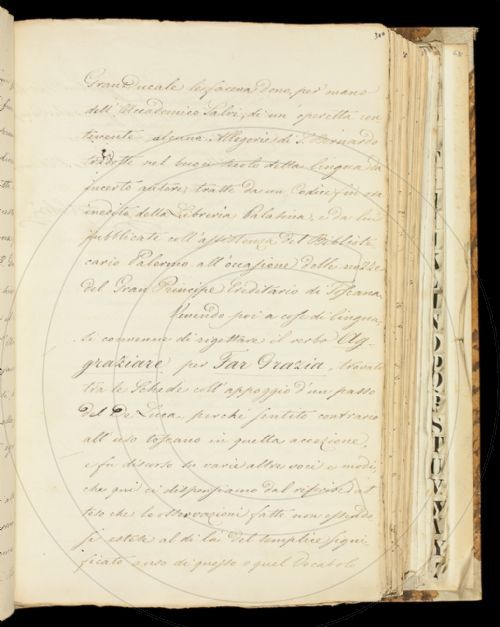 300
Granducale le faceva dono, per mano
dell'Accademico Salvi, di un'operetta con
tenente alcune Allegorie di S. Bernardo
tradotte nel buon secolo della lingua da
incerto autore, tratte da un Codice, in ora
inedito della Libreria Palatina, e da lui
pubblicate coll'assistenza del Bibliote
cario Palermo all'occasione delle nozze
del Gran Principe Ereditario di Toscana.
Venendo poi a cose di lingua,
si convenne di rigettare il verbo Ag-
graziare per Far Grazia, trovato
tra le Schede coll'appoggio d'un passo
del De Luca, perchè sentito contrario
all'uso toscano in quella accezione
e fu discorso su varie altre voci e modi,
che qui ci dispensiamo dal riferire, at
teso che le osservazioni fatte non essendo
si estese al di là del semplice signi-
ficato ora di questo o quel Vocabolo